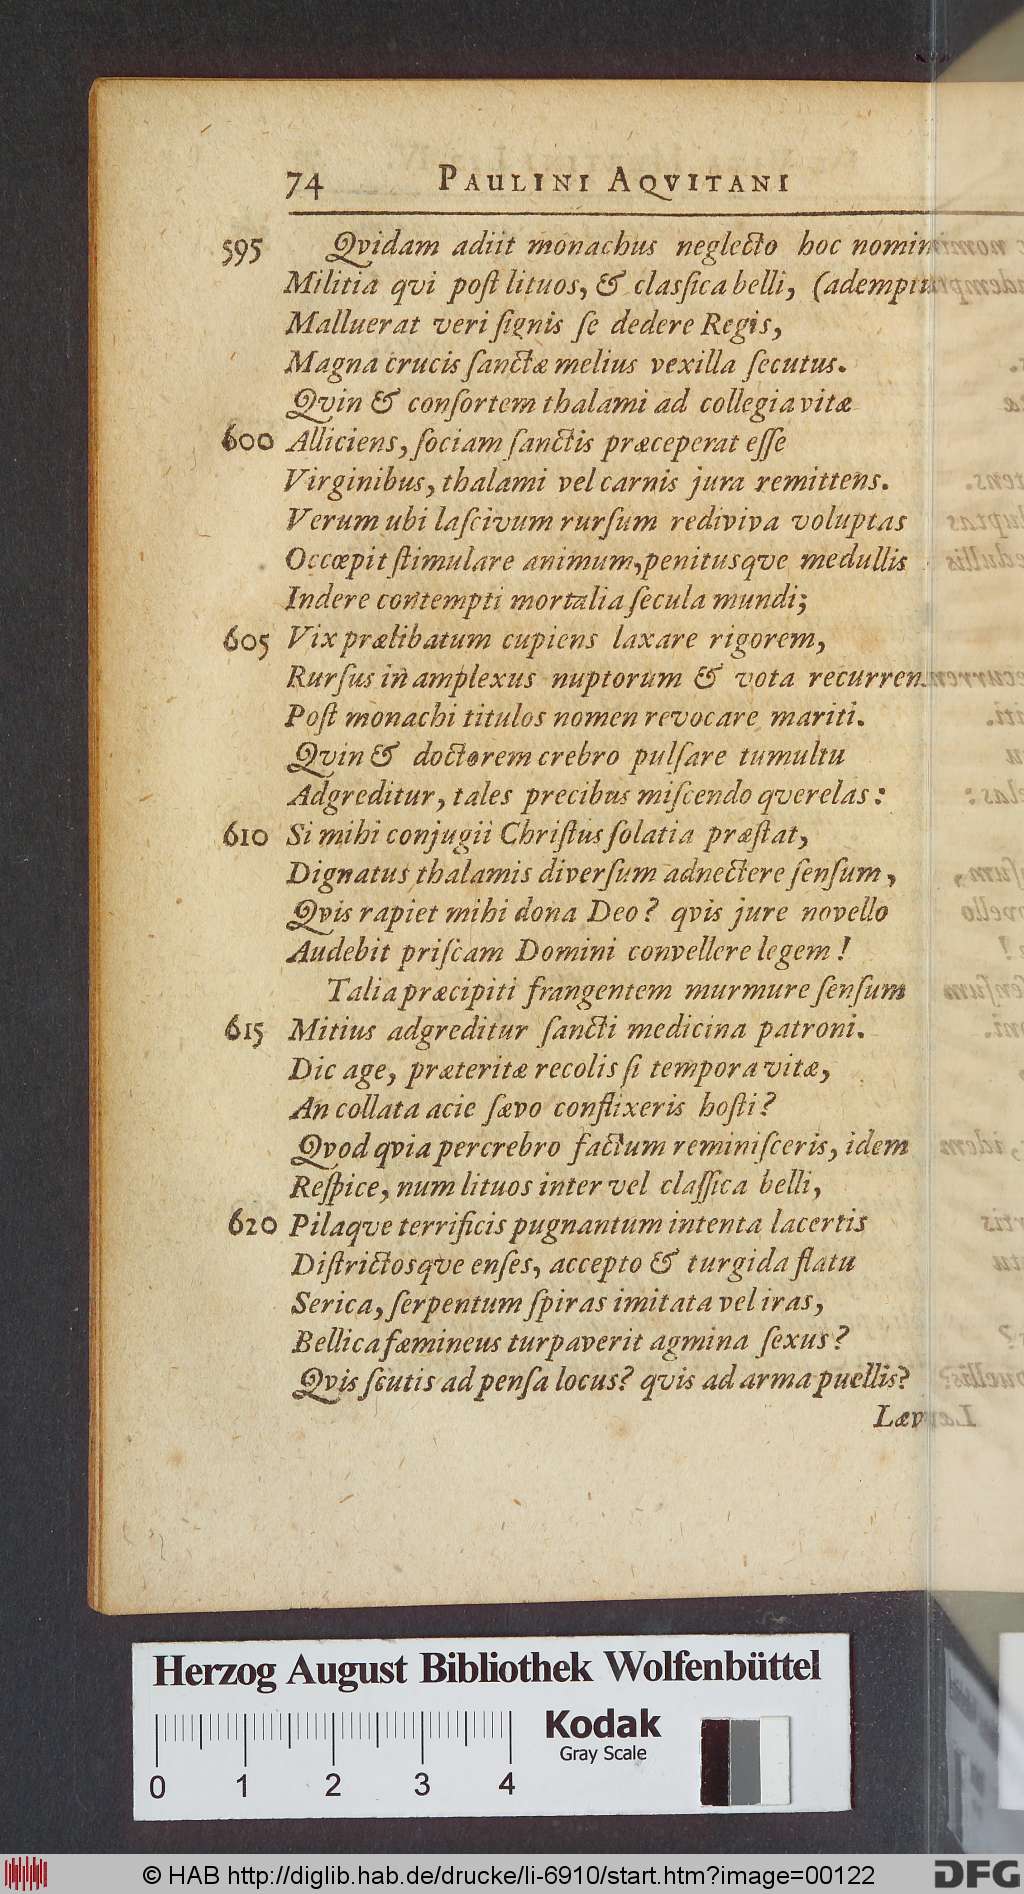 74 PAULINI AQVITANI
595 Qvidam adiit monachus neglecto hoc nomin
Militia qvi poſt lituos, & clasſica belli, (adempt
Malluerat veri ſignis ſe dedere Regis,
Magna crucis ſanctæ melius vexilla ſecutus.
Qvin & conſortem thalami ad collegia vitæ
600 Alliciens, ſociam ſanctis præceperat eſſe
Virginibus, thalami vel carnis jura remittens.
Verum ubi laſcivum rurſum rediviva voluptas
Occœpit ſtimulare animum, penitusqve medullis
Indere contempti mortalia ſecula mundi;
605 Vix prælibatum cupiens laxare rigorem,
Rurſus in amplexus nuptorum & vota recurren
Poſt monachi titulos nomen revocare mariti.
Qvin & doctorem crebro pulſare tumultu
Adgreditur, tales precibus miſcendo qverelas:
610 Si mihi conjugii Chriſtus ſolatia præſtat,
Dignatus thalamis diverſum adnectere ſenſum,
Qvis rapiet mihi dona Deo? qvis jure novello
Audebit priſcam Domini convellere legem!
Talia præcipiti frangentem murmure ſenſum
615 Mitius adgreditur ſancti medicina patroni.
Dic age, præteritæ recolis ſi tempora vitæ,
An collata acie ſævo conflixeris hoſti?
Qvod qvia percrebro factum reminiſceris, idem
Reſpice, num lituos inter vel claſſica belli,
620 Pilaqve terrificis pugnantum intenta lacertis
Diſtrictosqve enſes, accepto & turgida flatu
Serica, ſerpentum ſpiras imitata vel iras,
Bellica fæmineus turpaverit agmina ſexus?
Qvis ſcutis ad penſa locus? qvis ad arma puellis?
Læv
Herzog August Bibliothek Wolfenbüttel
Kodak
Gray Scale
0 1 2 3 4
© HAB http://diglib.hab.de/drucke/li-6910/start.htm?image=00122
DFG